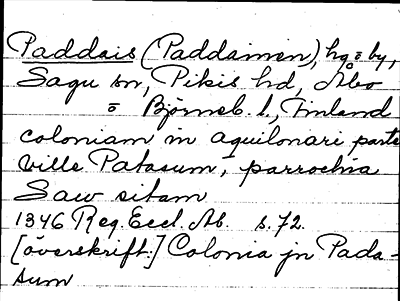 Paddais (Paddainen), hg o by,
Sagu sn, Pikis hd, Åbo
o Björneb. l., Finland
coloniam in aquilonari parte
ville Patasum, parrochia
Saw sitam
1346 Reg. Eccl. Ab. s. 72.
[överskrift:] Colonia jn Pada-
sum